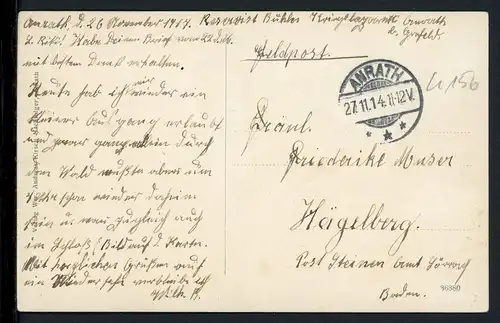 Anrath, d. 26 November 1914. Reservist Bühler Kriegslazarett Anrath
b. Crefeld.
L. Rikd! Habe Deinen Brief vom 22. d. Mts.
mit bestem Dank erhalten.
Heute hab ich mir wieder ein
kleiner Ausgang erlaubt
und zwar ganz allein durch
den Wald mußte aber um
schon wieder daheim
sein u. war zugleich auch
im Schloß! Bild auf d. Karten.
Mit herzlichen Grüßen auf
ein Wiedersehn verbleibe ich
Wilh. B.
Feldpost.
ANRATH
27.11.14.11-12V.
U 156
Fräul.
Friederike Muser
Hägelberg.
Post Steinen Amt Lörrach
Baden.
96380